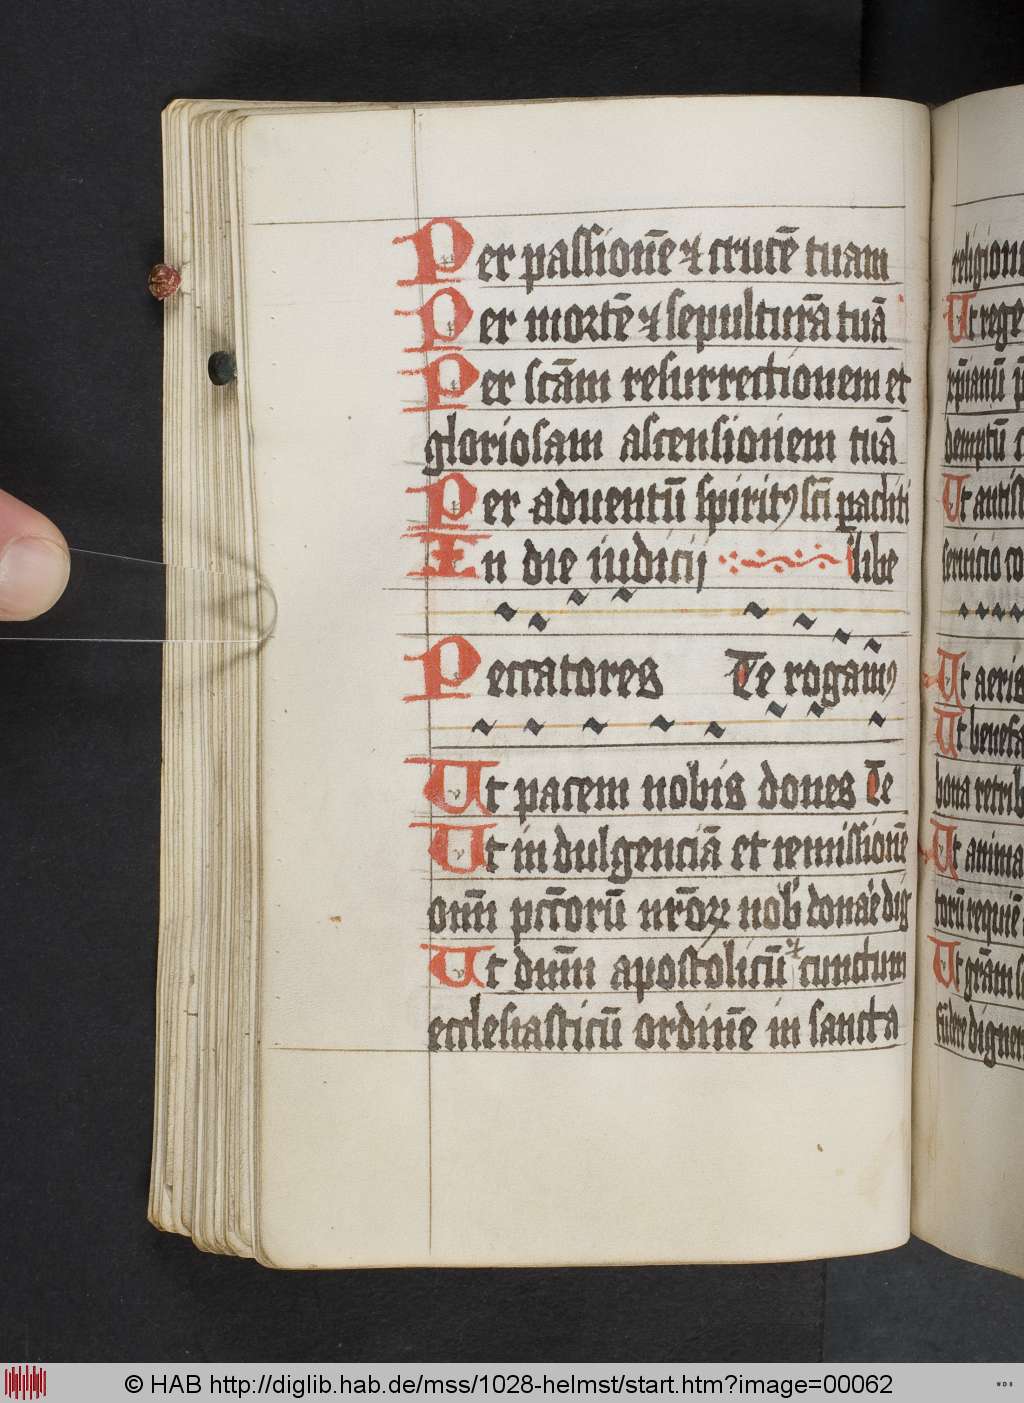 Per passionē & crucē tuam
Per mortē & sepulturā tuā
Per scām resurrectionem et
gloriosam ascensionem tuā
Per aduentū spiritꝯ scī pacliti
In die iudicij libe
Peccatores Te rogam̄ꝯ
Ut pacem nobis dones Te
Ut in dulgenciā et remissionē
om̄n pctōrū nrōꝝ nob donare dig
Ut dūm apostolicū & cunctum
ecclesiasticū ordinē in sancta
religioni
Ut rege
xp̄ianū p
demptū
Ut antist
seruicio co
Ut aeris
Ut benefa
bona retrib
Ut anima
torū requiē
Ut grām s
fūdere digner
© HAB http://diglib.hab.de/mss/1028-helmst/start.htm?image=00062